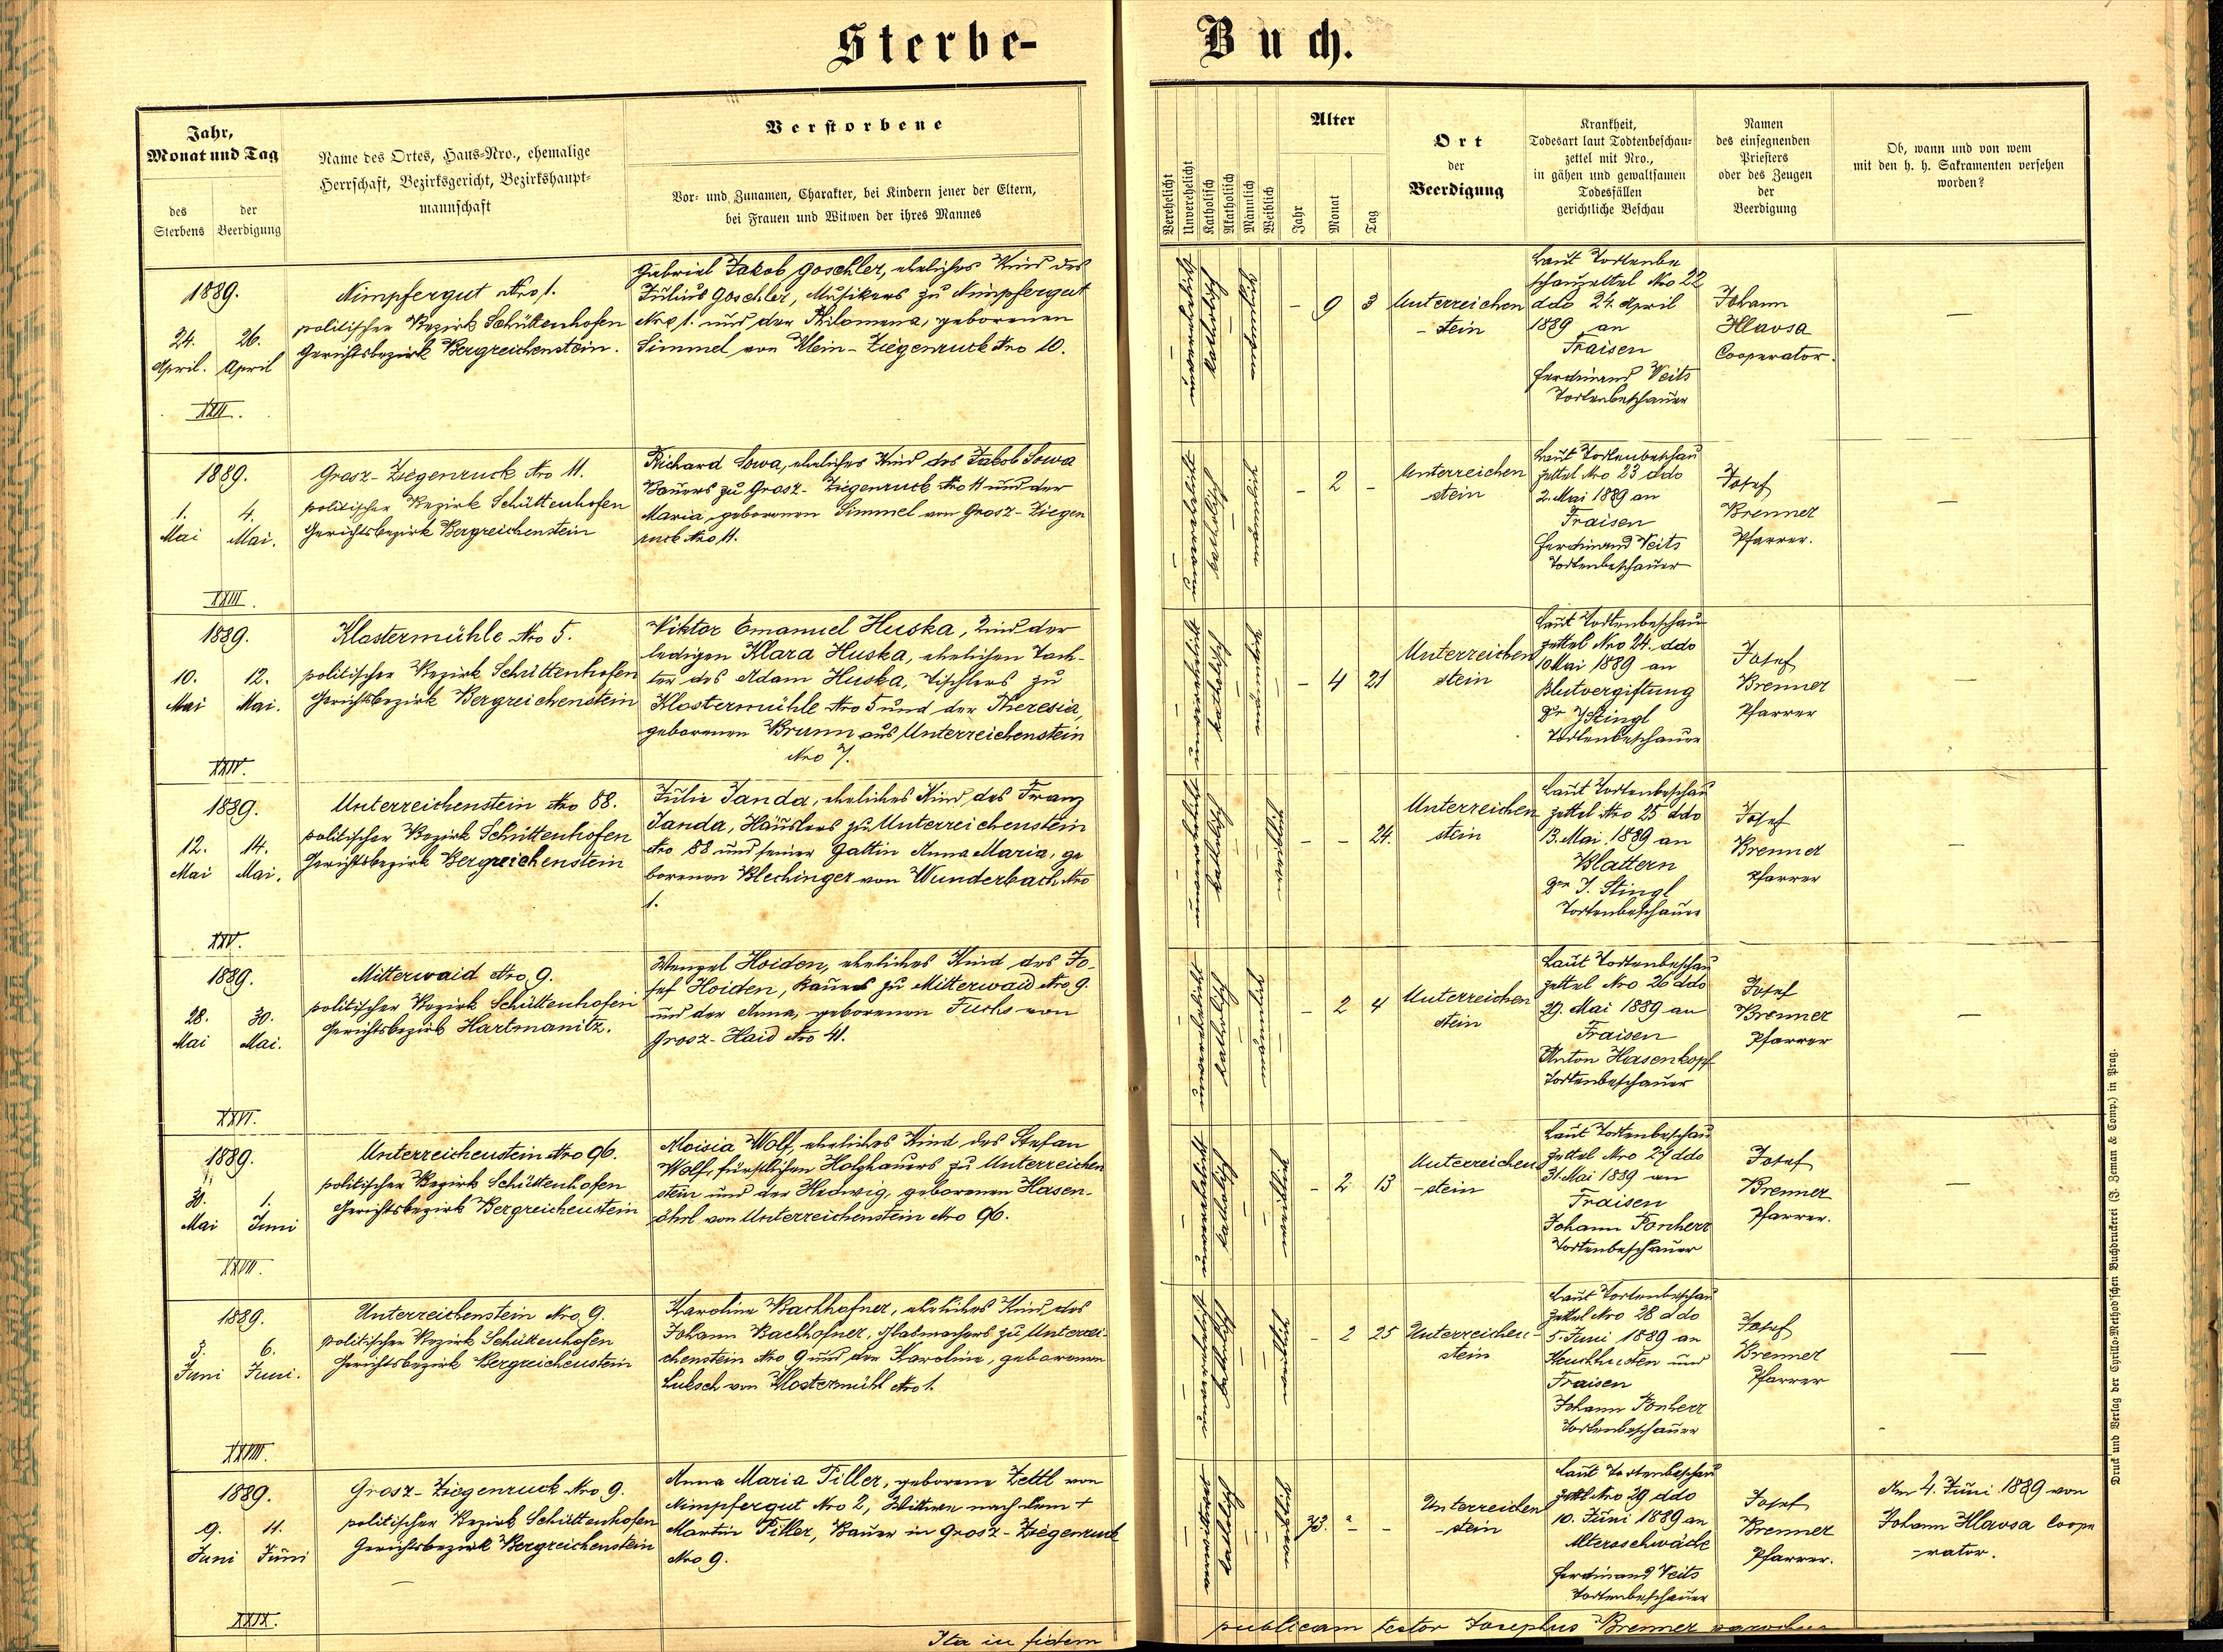 Sterbe-
Buch.
Jahr,
Monat und Tag
des Sterbens
der Beerdigung
Name des Ortes, Haus-Nro., ehemalige
Herrschaft, Bezirksgericht, Bezirkshaupt-
mannschaft
Verstorbene
Vor- und Zunamen, Charakter, bei Kindern jener der Eltern,
bei Frauen und Witwen der ihres Mannes
Verehelicht
Unverehelicht
Katholisch
Akatholisch
Männlich
Weiblich
Alter
Jahr
Monat
Tag
Ort
der
Beerdigung
Krankheit,
Todesart laut Todtenbeschau-
zettel mit Nro.,
in gähen und gewaltsamen
Todesfällen
gerichtliche Beschau
Namen
des einsegnenden
Priesters
oder des Zeugen
der
Beerdigung
Ob, wann und von wem
mit den h. h. Sakramenten versehen
worden?
1889.
24. April.
26. April
XXII.
Nimpfergut Nro 1.
politischer Bezirk Schüttenhofen
Gerichtsbezirk Bergreichenstein.
Gabriel Jakob Goschler, eheliches Kind des
Julius Goschler, Musikers zu Nimpfergut
Nro 1. und der Philomena, geborenen
Simmel von Klein-Ziegenruck Nro 10.
unverehelicht
katholisch
männlich
- 9 3
Unterreichen
-stein
Laut Todtenbe
schauzettel Nro 22
ddo 24. April
1889 an
Fraisen
Ferdinand Veits
Todtenbeschauer
Johann
Hlavsa
Cooperator.
—
1889.
1. Mai
4. Mai.
XXIII.
Grosz-Ziegenruck Nro 11.
politischer Bezirk Schüttenhofen
Gerichtsbezirk Bergreichenstein
Richard Sowa, eheliches Kind des Jakob Sowa
Bauers zu Grosz-Ziegenruck Nro 11 und der
Maria geborenen Simmel von Grosz-Ziegen
ruck Nro 11.
unverehelicht
katholisch
männlich
- 2 -
Unterreichen
stein
Laut Todtenbeschau
zettel Nro 23 ddo
2. Mai 1889 an
Fraisen
Ferdinand Veits
Todtenbeschauer
Josef
Brenner
Pfarrer.
—
1889.
10. Mai
12. Mai.
XXIV.
Klostermühle Nro 5.
politischer Bezirk Schüttenhofen
Gerichtsbezirk Bergreichenstein
Viktor Emanuel Huska, Kind der
ledigen Klara Huska, ehelichen Toch-
ter des Adam Huska, Tischlers zu
Klostermühle Nro 5 und der Theresia,
geborenen Brunn aus Unterreichenstein
Nro 7.
unverehelicht
katholisch
männlich
- 4 21
Unterreichen
stein
Laut Todtenbeschau
zettel Nro 24. ddo
10 Mai 1889 an
Blutvergiftung
Dr J Stingl
Todtenbeschauer
Josef
Brenner
Pfarrer
—
1889.
12. Mai
14. Mai.
XXV.
Unterreichenstein Nro 88.
politischer Bezirk Schüttenhofen
Gerichtsbezirk Bergreichenstein
Julie Janda, eheliches Kind des Franz
Janda, Häuslers zu Unterreichenstein
Nro 88 und seiner Gattin Anna Maria, ge
borenen Blechinger von Wunderbach Nro
1.
unverehelicht
katholisch
weiblich
- - 24.
Unterreichen
stein
Laut Todtenbeschau
zettel Nro 25 ddo
13. Mai 1889 an
Blattern
Dr J. Stingl
Todtenbeschauer
Josef
Brenner
Pfarrer
—
1889.
28. Mai
30. Mai.
XXVI.
Mitterwaid Nro 9.
politischer Bezirk Schüttenhofen
Gerichtsbezirk Hartmanitz.
Wenzel Hoiden, eheliches Kind des Jo-
sef Hoiden, Bauers zu Mitterwaid Nro 9.
und der Anna, geborenen Fuchs von
Grosz-Haid Nro 41.
unverehelicht
katholisch
männlich
- 2 4
Unterreichen
stein
Laut Todtenbeschau
zettel Nro 26 ddo
29. Mai 1889 an
Fraisen
Anton Hasenkopf
Todtenbeschauer
Josef
Brenner
Pfarrer
—
1889.
31. Mai
1. Juni
XXVII.
Unterreichenstein Nro 96.
politischer Bezirk Schüttenhofen
Gerichtsbezirk Bergreichenstein
Aloisia Wolf, eheliches Kind des Stefan
Wolf, fürstlichen Holzhauers zu Unterreichen
stein und der Hedwig, geborenen Hasen-
öhrl von Unterreichenstein Nro 96.
unverehelicht
katholisch
weiblich
- 2 13
Unterreichen
-stein
Laut Todtenbeschau
zettel Nro 27 ddo
31. Mai 1889 an
Fraisen
Johann Ponherr
Todtenbeschauer
Josef
Brenner
Pfarrer.
—
1889.
3. Juni
6. Juni.
XXVIII.
Unterreichenstein Nro 9.
politischer Bezirk Schüttenhofen
Gerichtsbezirk Bergreichenstein
Karoline Bachhofner, eheliches Kind des
Johann Bachhofner, Glasmachers zu Unterrei-
chenstein Nro 9 und der Karoline, geborenen
Luksch von Klostermühl Nro 1.
unverehelicht
katholisch
weiblich
- 2 25
Unterreichen-
stein
Laut Todtenbeschau
zettel Nro 28 ddo
5. Juni 1889 an
Keuchhusten und
Fraisen
Johann Ponherr
Todtenbeschauer
Josef
Brenner
Pfarrer
—
1889.
9. Juni
11. Juni
XXIX.
Grosz-Ziegenruck Nro 9.
politischer Bezirk Schüttenhofen
Gerichtsbezirk Bergreichenstein
Anna Maria Piller, geborene Zettl von
Nimpfergut Nro 2, Wittwe nach dem +
Martin Piller, Bauer in Grosz-Ziegenruck
Nro 9.
verwittwet
katholisch
weiblich
73. - -
Unterreichen
-stein
Laut Todtenbeschau
zettl Nro 29 ddo
10. Juni 1889 an
Altersschwäche
Ferdinand Veits
Todtenbeschauer
Josef
Brenner
Pfarrer.
Am 4. Juni 1889 von
Johann Hlavsa Coope
-rator.
Ita in fidem
publicam testor Josephus Brenner parochus
Druck und Verlag der Cyrillo-Method'schen Buchdruckerei (J. Zeman & Comp.) in Prag.